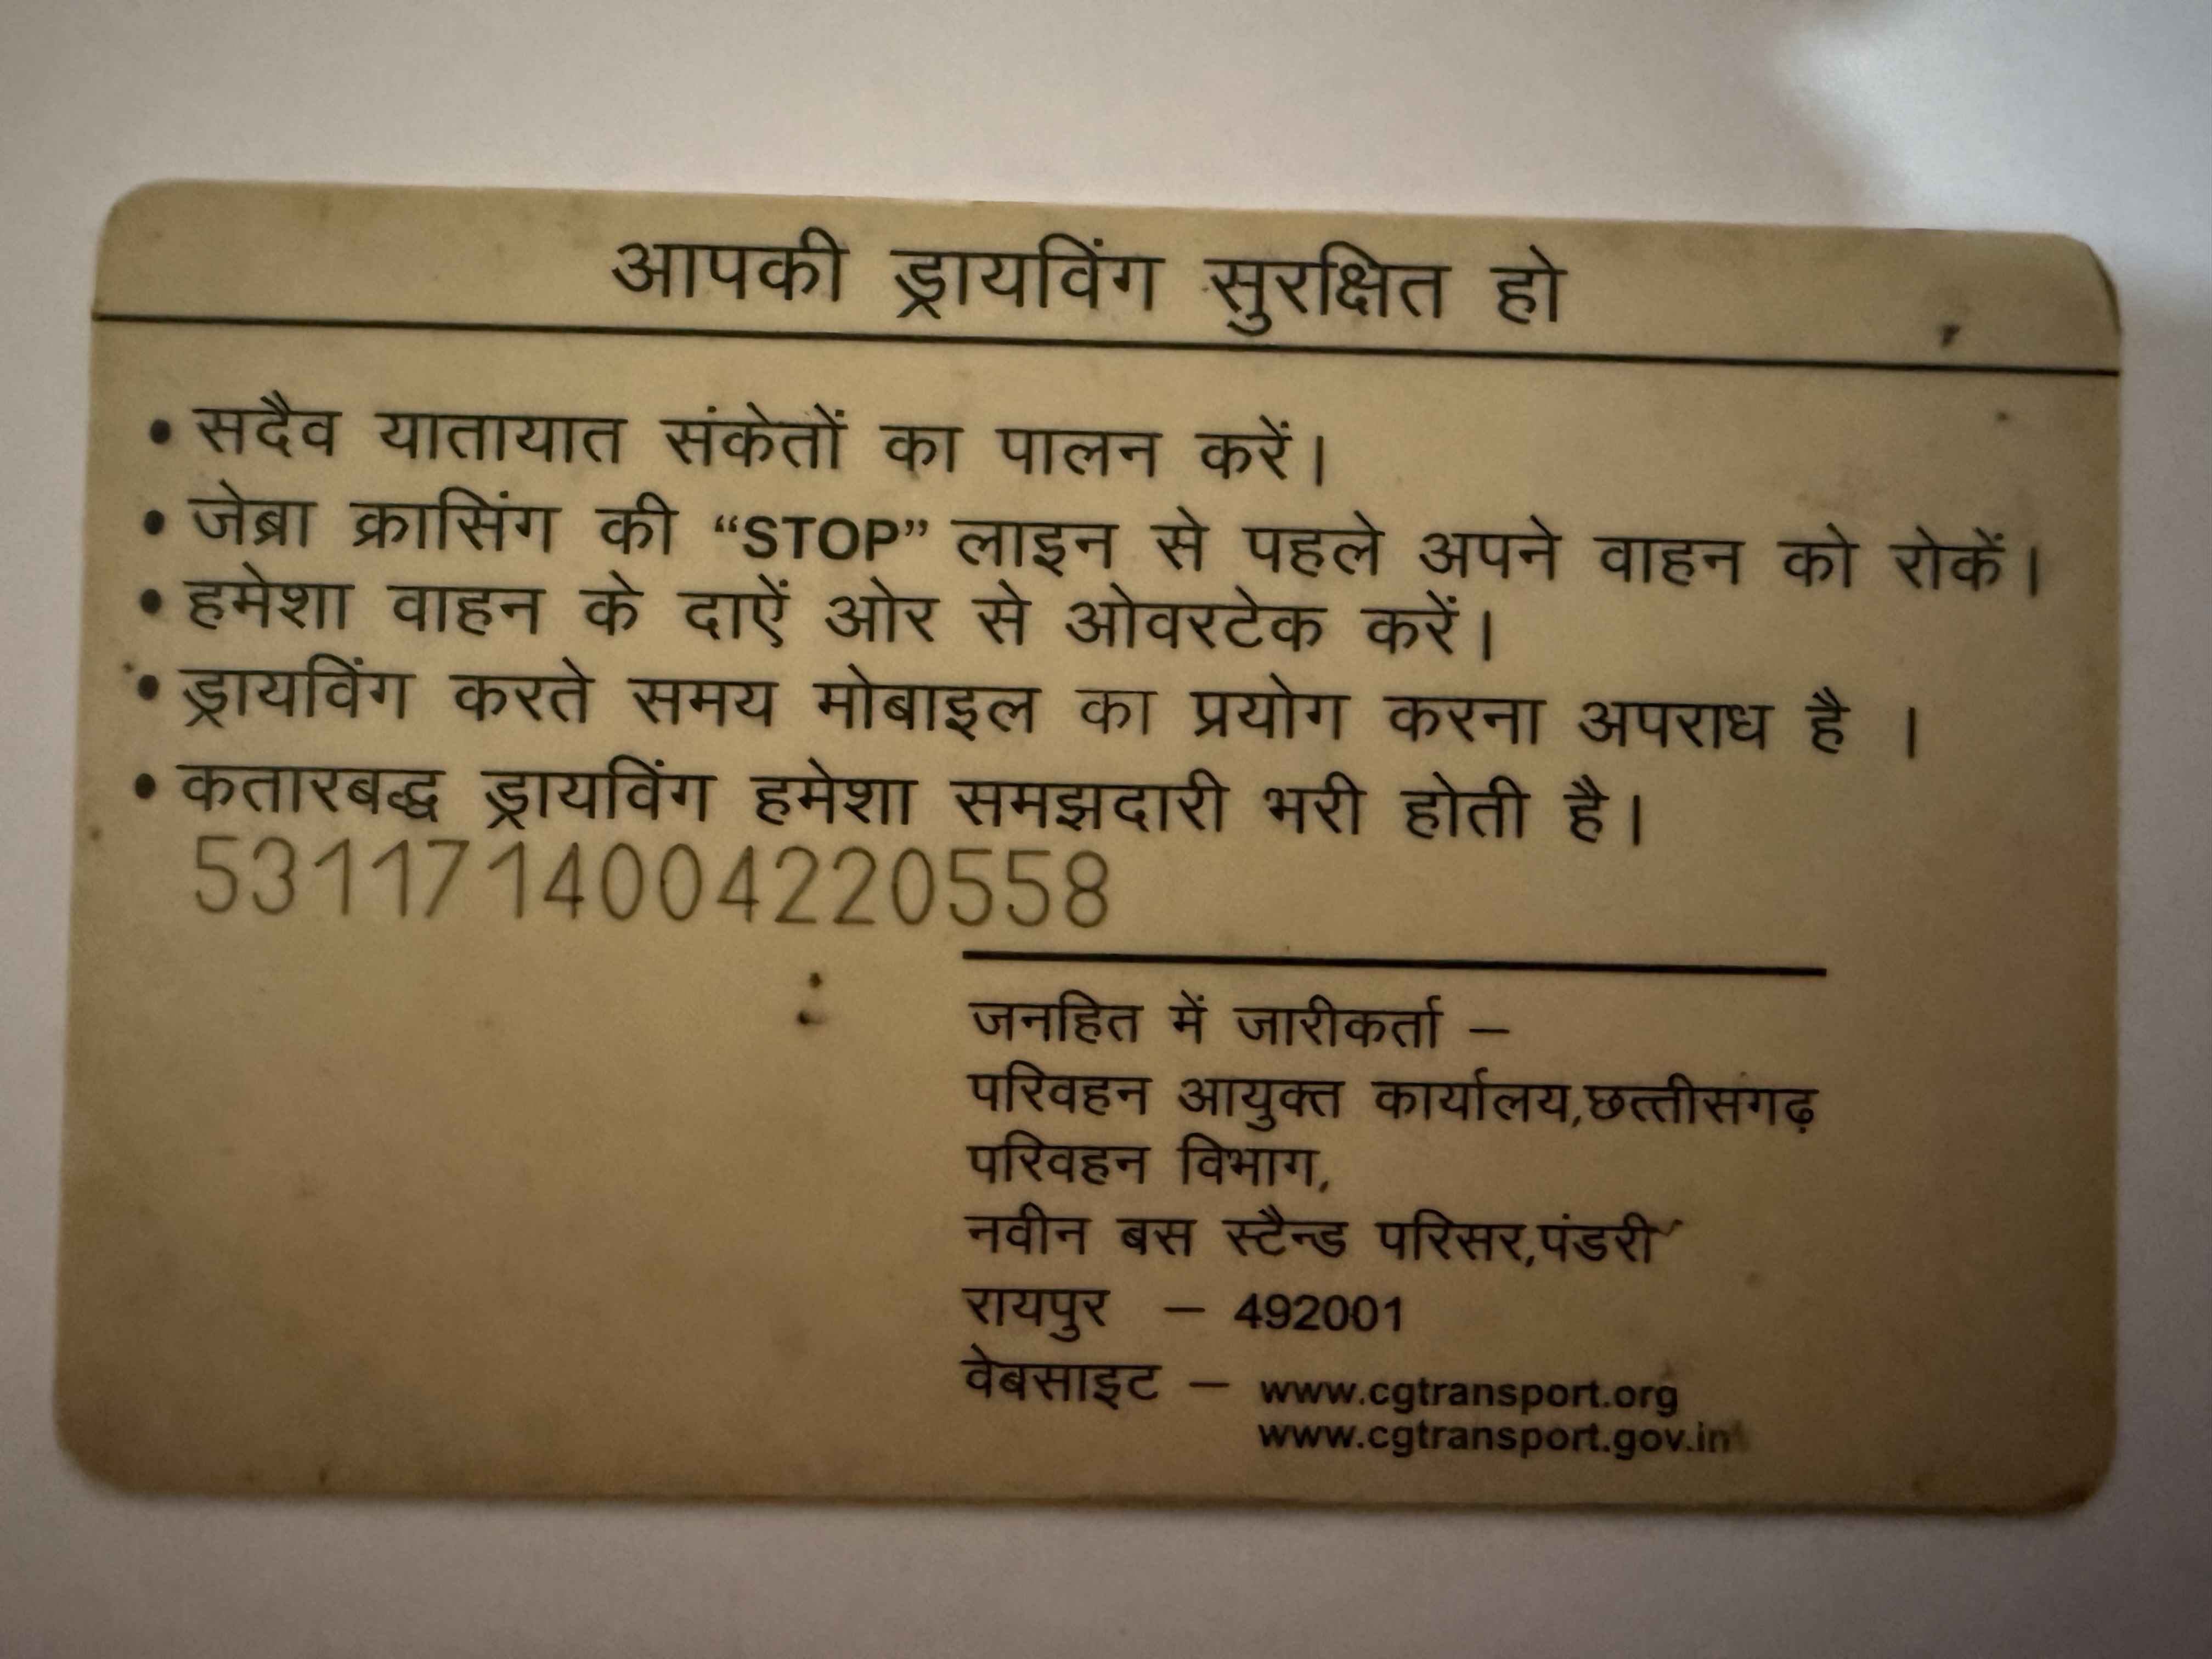 आपकी ड्रायविंग सुरक्षित हो
• सदैव यातायात संकेतों का पालन करें।
• जेब्रा क्रासिंग की “STOP” लाइन से पहले अपने वाहन को रोकें।
• हमेशा वाहन के दाऐं ओर से ओवरटेक करें।
• ड्रायविंग करते समय मोबाइल का प्रयोग करना अपराध है ।
• कतारबद्ध ड्रायविंग हमेशा समझदारी भरी होती है।
5311714004220558
जनहित में जारीकर्ता –
परिवहन आयुक्त कार्यालय,छत्तीसगढ़
परिवहन विभाग,
नवीन बस स्टैन्ड परिसर,पंडरी
रायपुर – 492001
वेबसाइट – www.cgtransport.org
www.cgtransport.gov.in